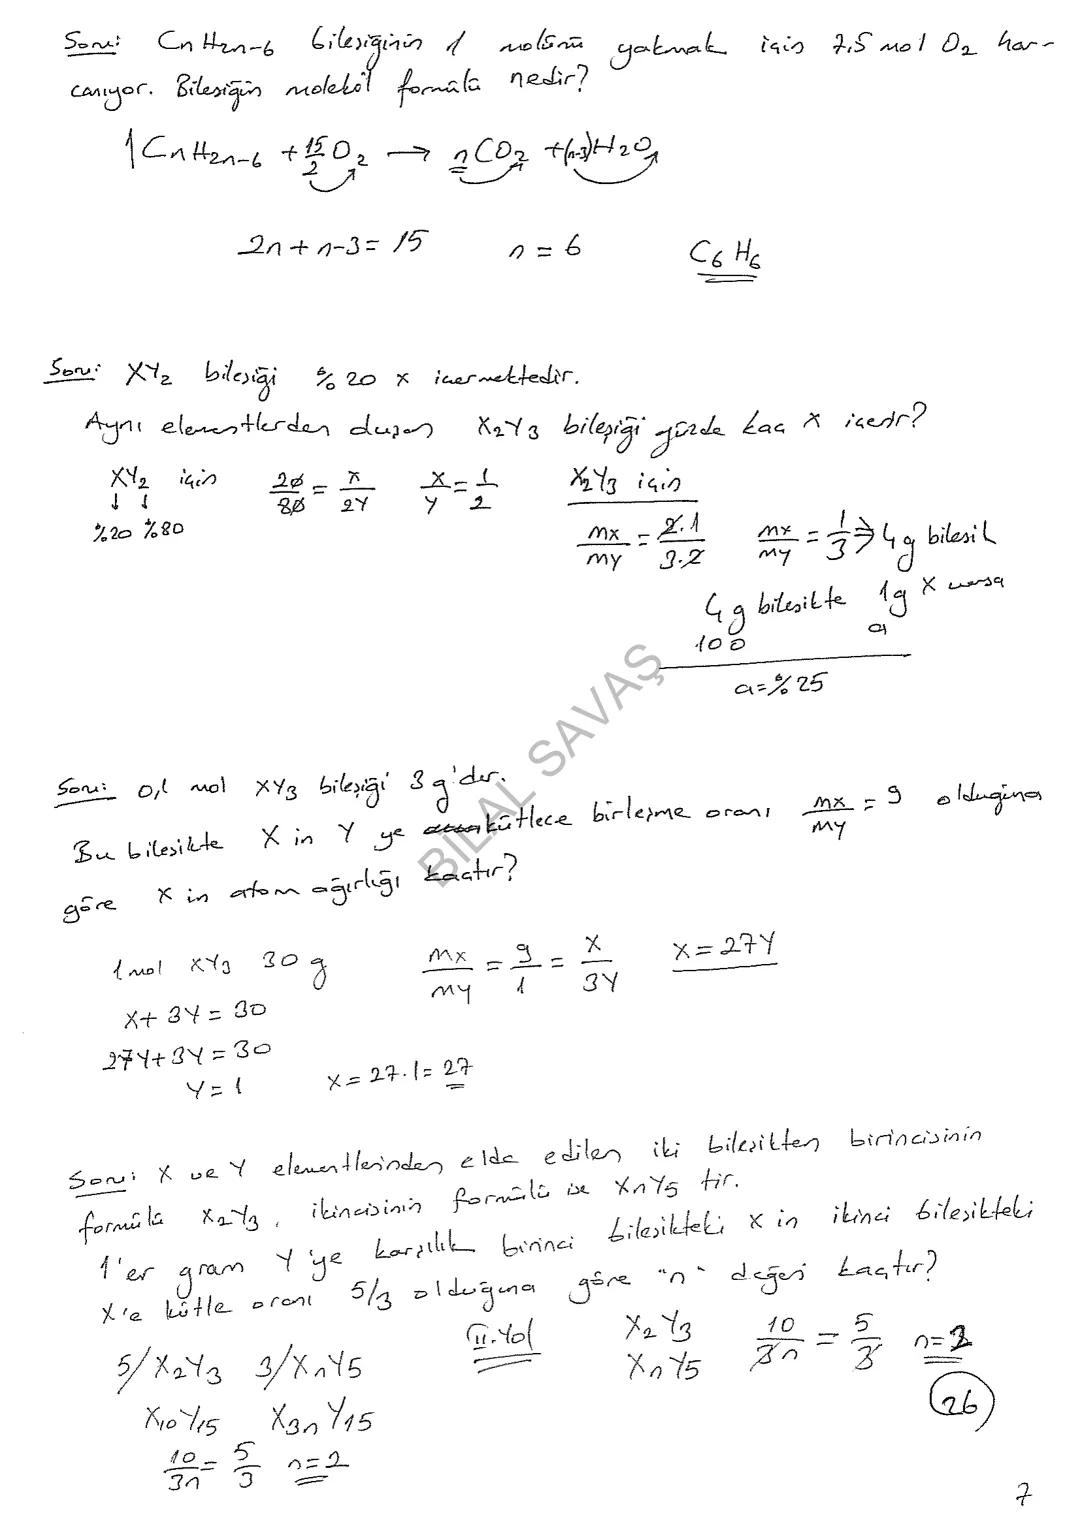 Soru: CnH2n-6 bileşiğinin 1 molünü yakmak için 7,5 mol O2 har-
canıyor. Bileşiğin molekül formülü nedir?
1CnH2n-6 + 15/2 O2 → nCO2 + (n-3)H2O
2n + n-3 = 15 n = 6 C6H6
Soru: XY2 bileşiği %20 X içermektedir.
Aynı elementlerden oluşan X2Y3 bileşiği yüzde kaç X içerir?
XY2 için 20/80 = X/2Y X/Y = 1/2 X2Y3 için
↓ ↓
%20 %80 mx/my = 2.1/3.2 mx/my = 1/3 ⇒ 4g bileşik
4g bileşikte 1g X varsa
100 a
a = %25
BİLAL SAVAŞ
Soru: 0,1 mol XY3 bileşiği 3 g'dır.
Bu bileşikte X in Y ye kütlece birleşme oranı mx/my = 9 olduğuna
göre X in atom ağırlığı kaçtır?
1 mol XY3 30 g mx/my = 9/1 = X/3Y X = 27Y
X + 3Y = 30
27Y + 3Y = 30
Y = 1 X = 27.1 = 27
Soru: X ve Y elementlerinden elde edilen iki bileşikten birincisinin
formülü X2Y3, ikincisinin formülü ise XnY5 tir.
1'er gram Y'ye karşılık birinci bileşikteki X in ikinci bileşikteki
X'e kütle oranı 5/3 olduğuna göre "n" değeri kaçtır?
5/X2Y3 3/XnY5 II. Yol X2Y3 10/3n = 5/3 n = 2
XnY5
X10Y15 X3nY15 26
10/3n = 5/3 n = 2
7